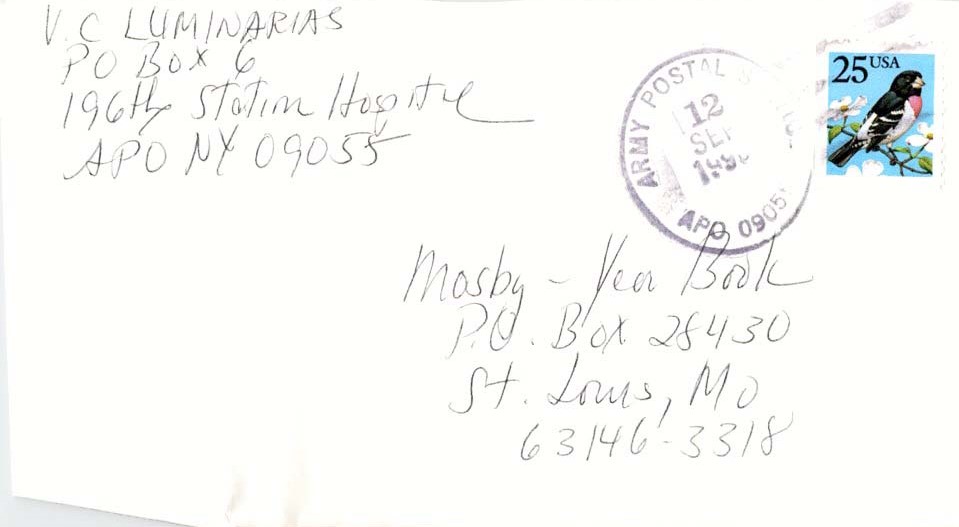 V.C LUMINARIAS
PO Box 6
196th Station Hospital
APO NY 09055
ARMY POSTAL
12
SEP
APO 09055
25 USA
Mosby - Year Book
P.O. Box 28430
St. Louis, Mo
63146-3318